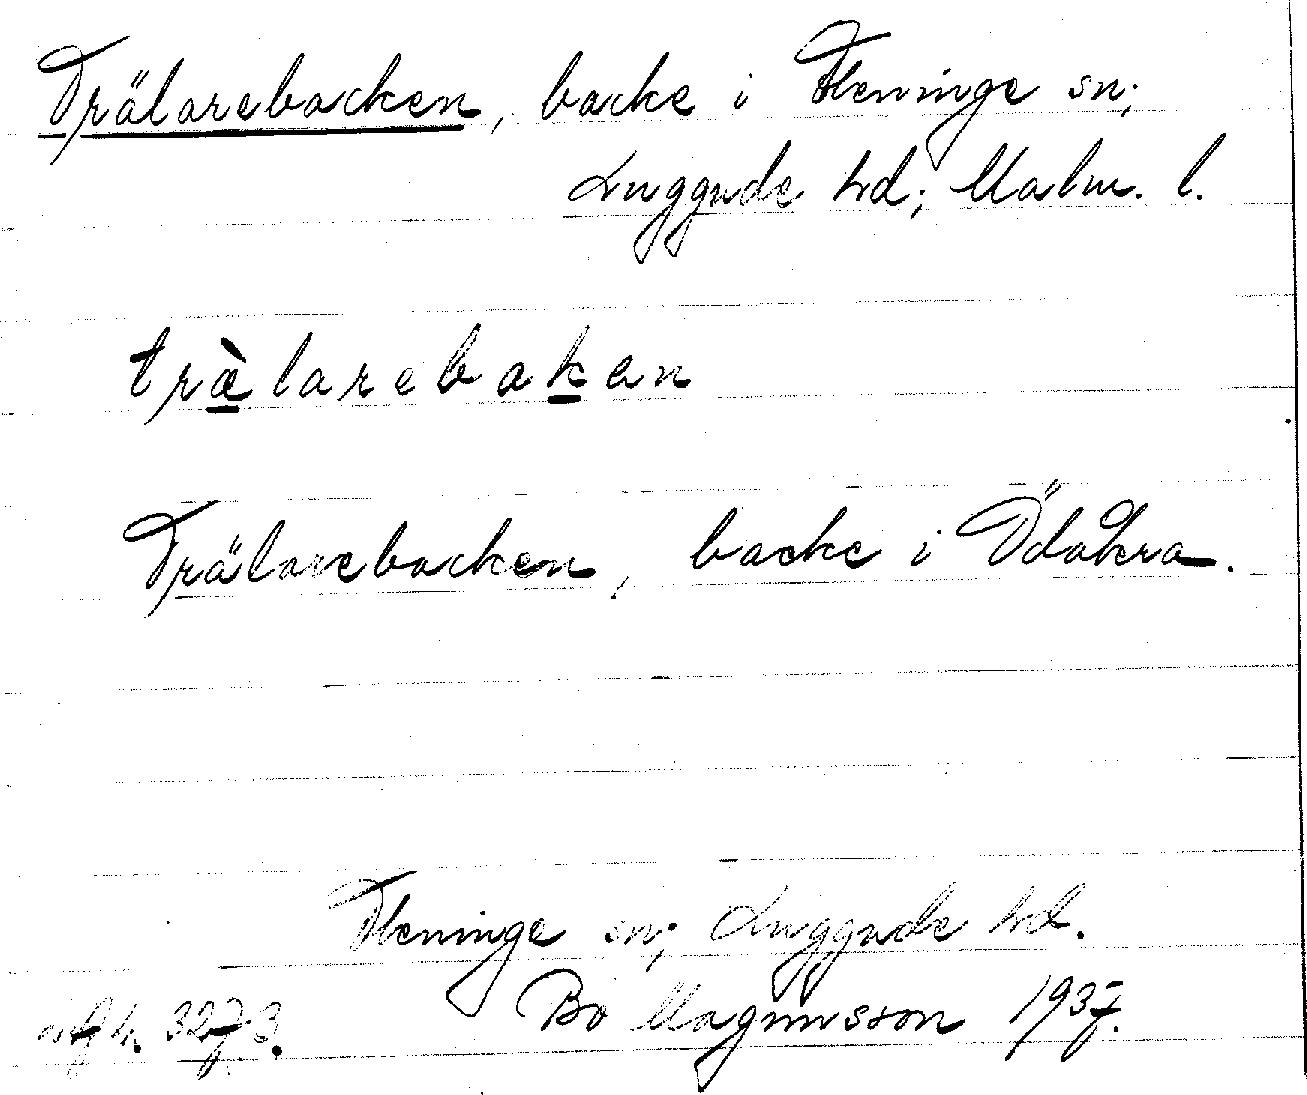 Trälarebacken, backe i Fleninge sn;
Luggude hd; Malm. l.
trälarebaken
Trälarebacken, backe i Ödåkra.
Fleninge sn; Luggude hd.
Bo Magnusson 1937.
3273.